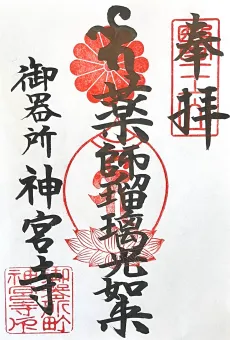 奉拝
薬師瑠璃光如来
御器所 神宮寺